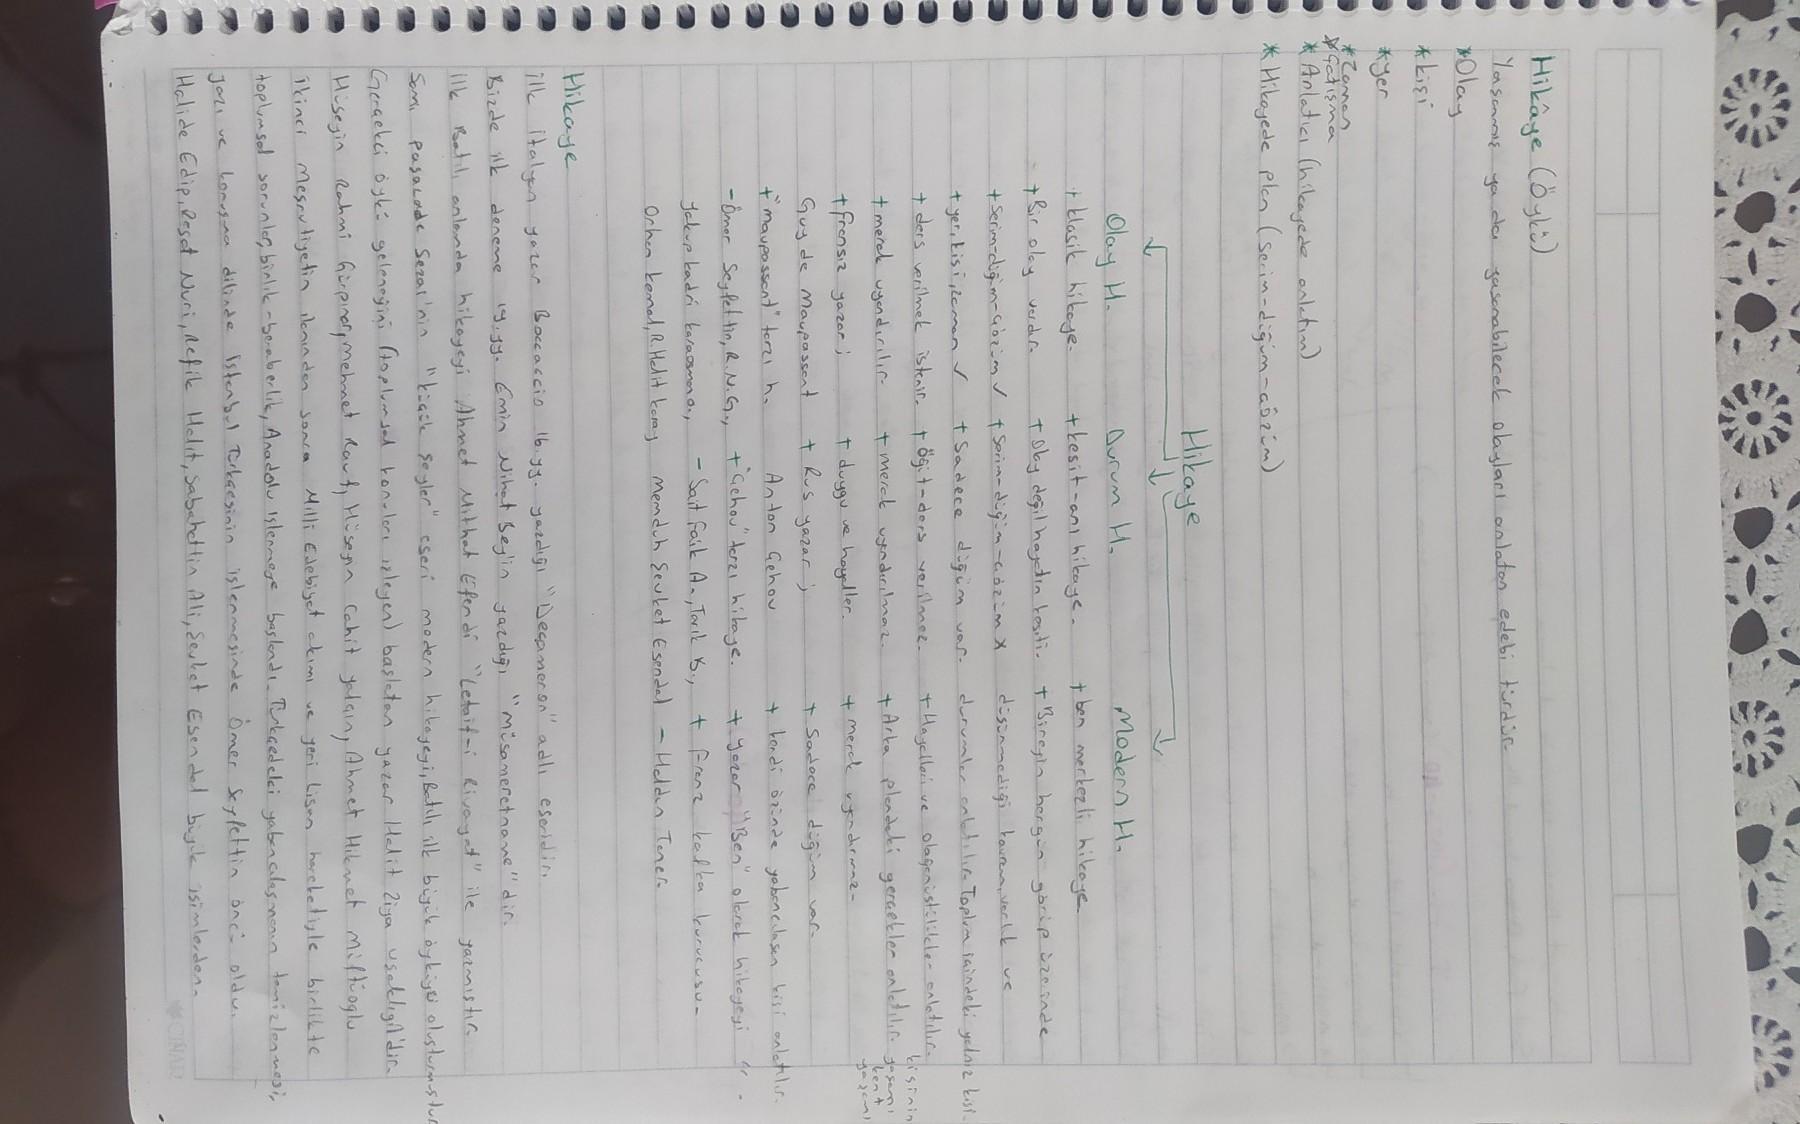 Hikâye (Öykü)
Yaşanmış ya da yaşanabilecek olayları anlatan edebi türdür.
*Olay
*kişi
*yer
*Zaman
*Çatışma
*Anlatıcı (hikayede anlatım)
*Hikayede plan (serim-düğüm-çözüm)
Hikaye
Olay H. Durum H. Modern H.
+klasik hikaye. +kesit-anı hikaye. +ben merkezli hikaye
+Bir olay vardır. +Olay değil hayatın kesiti. +"Bireyin hergün görüp üzerinde
+serim-düğüm-çözüm ✓ +serim-düğüm-çözüm x düşünmediği kavram, varlık ve
+yer, kişi, zaman ✓ +Sadece düğüm var. durumlar anlatılır. Toplum içindeki yalnız kişi
+ders verilmek istenir. +Öğüt-ders verilmez. +Hayalleri ve olağanüstülükler anlatılır. kişinin
+merak uyandırılır. +merak uyandırılmaz. +Arka plandaki gerçekler anlatılır. yaşamı
kent
+fransız yazarı; +duygu ve hayaller. +merak uyandırmaz. yaşamı
Guy de Maupassant +Rus yazarı; +Sadece düğüm var.
+"maupassant" tarzı h. Anton Çehov +kendi özünde yabancılaşan kişi anlatılır.
-Ömer Seyfettin, R.N.G., +"Çehov" tarzı hikaye. +yazar "Ben" olarak hikayeyi
yakup kadri karaosman, -Sait Faik A., Tarık B., +franz kafka kurucusu.
Orhan kemal, R. Halit karay memduh Şevket Esendal -Haldun Taner.
Hikaye
ilk italyan yazar Boccaccio 16.yy. yazdığı "Decameron" adlı eseridir.
Bizde ilk deneme 19.yy. Emin Nihat Beyin yazdığı "müsameretname" dir.
ilk Batılı anlamda hikayeyi Ahmet Mithat Efendi "Letaif-i Rivayat" ile yazmıştır.
Sami paşazade Sezai'nin "küçük şeyler" eseri modern hikayeyi, Batılı ilk büyük öyküyü oluşturmuştur
Gerçekçi öykü geleneğini (toplumsal konuları izleyen) başlatan yazar Halit Ziya uşaklıgil'dir.
Hüseyin Rahmi Gürpınar, mehmet Rauf, Hüseyin Cahit yalçın, Ahmet Hikmet müftüoğlu
ikinci meşrutiyetin ilanından sonra Milli Edebiyat akımı ve yeni lisan hareketiyle birlikte
toplumsal sorunlar, birlik-beraberlik, Anadolu işlenmeye başlandı. Türkçedeki yabancılaşmanın temizlenmesi,
yazı ve konuşma dilinde istanbul Türkçesinin işlenmesinde Ömer Seyfettin öncü oldu.
Halide Edip, Reşat Nuri, Refik Halit, Sabahattin Ali, Şevket Esendal büyük isimlerden.
ÇINAR